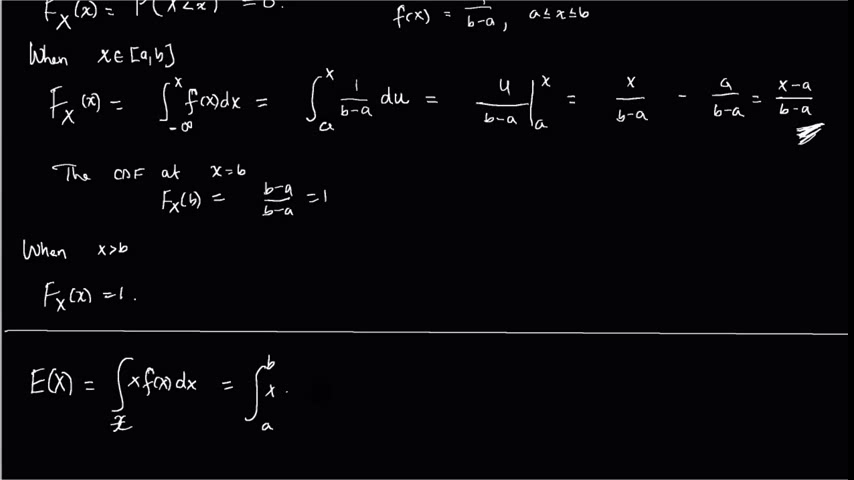 F_X(x) = P(X<x) = 0.
f(x) = 1/(b-a), a≤x≤b
When x∈[a,b]
F_X(x) = ∫_{-∞}^{x} f(x)dx = ∫_a^x 1/(b-a) du = u/(b-a) |_a^x = x/(b-a) - a/(b-a) = (x-a)/(b-a)
The CDF at x=b
F_X(b) = (b-a)/(b-a) = 1
When x>b
F_X(x) = 1.
E(X) = ∫_x x f(x) dx = ∫_a^b x .